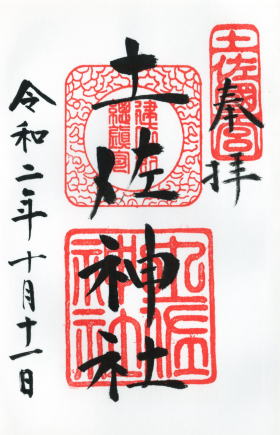 土佐國一宮
奉拝
土佐神社
土佐
神社
令和二年十月十一日